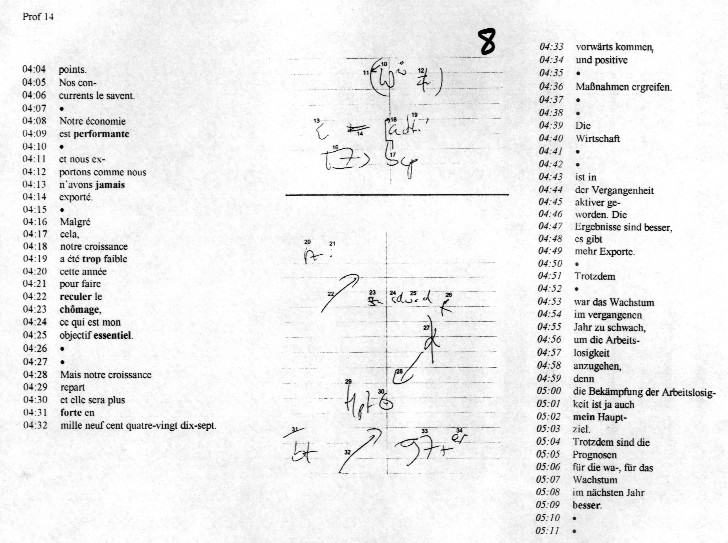 Prof 14
8
04:04 points.
04:05 Nos con-
04:06 currents le savent.
04:07 •
04:08 Notre économie
04:09 est performante
04:10 •
04:11 et nous ex-
04:12 portons comme nous
04:13 n'avons jamais
04:14 exporté.
04:15 •
04:16 Malgré
04:17 cela,
04:18 notre croissance
04:19 a été trop faible
04:20 cette année
04:21 pour faire
04:22 reculer le
04:23 chômage,
04:24 ce qui est mon
04:25 objectif essentiel.
04:26 •
04:27 •
04:28 Mais notre croissance
04:29 repart
04:30 et elle sera plus
04:31 forte en
04:32 mille neuf cent quatre-vingt dix-sept.
10
11 12
13 14 18 19
16 17
20 21
22 23 24 25 26
27
28
29 30
31 32 33 34
97 er
04:33 vorwärts kommen,
04:34 und positive
04:35 •
04:36 Maßnahmen ergreifen.
04:37 •
04:38 •
04:39 Die
04:40 Wirtschaft
04:41 •
04:42 •
04:43 ist in
04:44 der Vergangenheit
04:45 aktiver ge-
04:46 worden. Die
04:47 Ergebnisse sind besser,
04:48 es gibt
04:49 mehr Exporte.
04:50 •
04:51 Trotzdem
04:52 •
04:53 war das Wachstum
04:54 im vergangenen
04:55 Jahr zu schwach,
04:56 um die Arbeits-
04:57 losigkeit
04:58 anzugehen,
04:59 denn
05:00 die Bekämpfung der Arbeitslosig-
05:01 keit ist ja auch
05:02 mein Haupt-
05:03 ziel.
05:04 Trotzdem sind die
05:05 Prognosen
05:06 für die wa-, für das
05:07 Wachstum
05:08 im nächsten Jahr
05:09 besser.
05:10 •
05:11 •